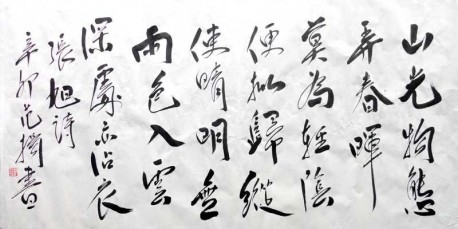 山光物態
弄春暉
莫為輕陰
便拟歸縱
使晴明無
雨色入雲
深處亦沾衣
張旭詩
辛卯范書